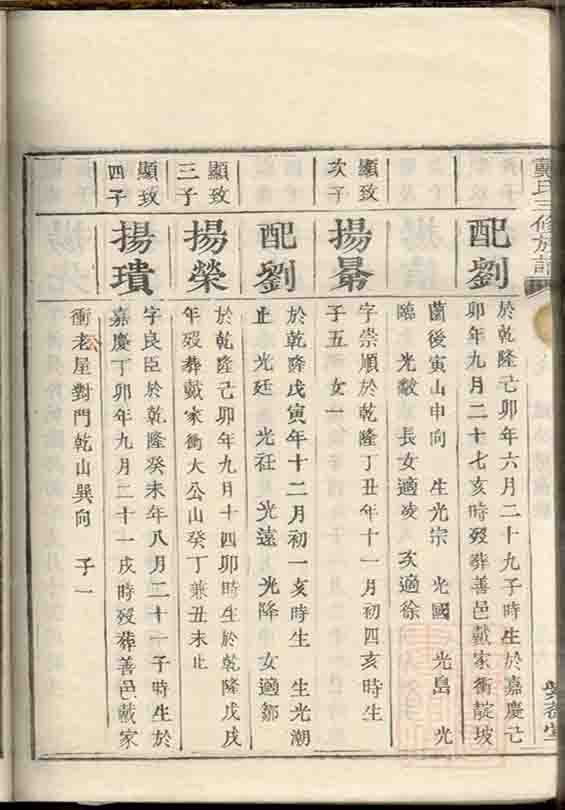 戴氏三修族譜
配劉
於乾隆己卯年六月二十九子時生於嘉慶己
卯年九月二十七亥時歿葬善邑戴家衝靛坡
薗後寅山申向 生光宗 光國 光島 光
臨 光敵 長女適凌 次適徐
顯致
次子
揚
字崇順於乾隆丁丑年十一月初四亥時生
子五 女一
配劉
於乾隆戊寅年十二月初一亥時生 生光潮
止 光廷 光社 光遠 光降 女適鄒
顯致
三子
揚榮
於乾隆己卯年九月十四卯時生於乾隆戊戌
年歿葬戴家衝大公山癸丁兼丑未止
顯致
四子
揚璝
字良臣於乾隆癸未年八月二十一子時生於
嘉慶丁卯年九月二十一戌時歿葬善邑戴家
衝老屋對門乾山巽向 子一